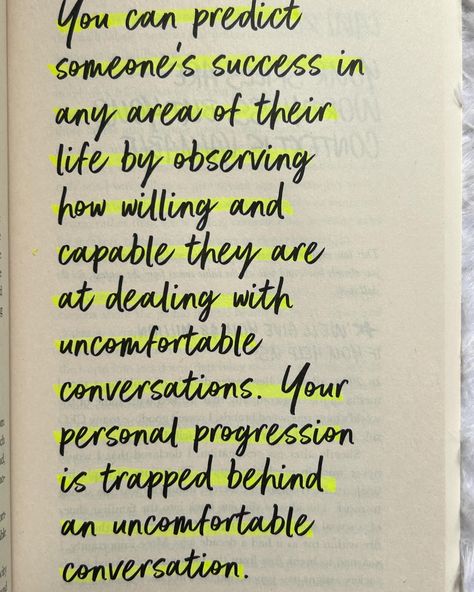 You can predict
someone's success in
any area of their
life by observing
how willing and
capable they are
at dealing with
uncomfortable
conversations. Your
personal progression
is trapped behind
an uncomfortable
conversation.